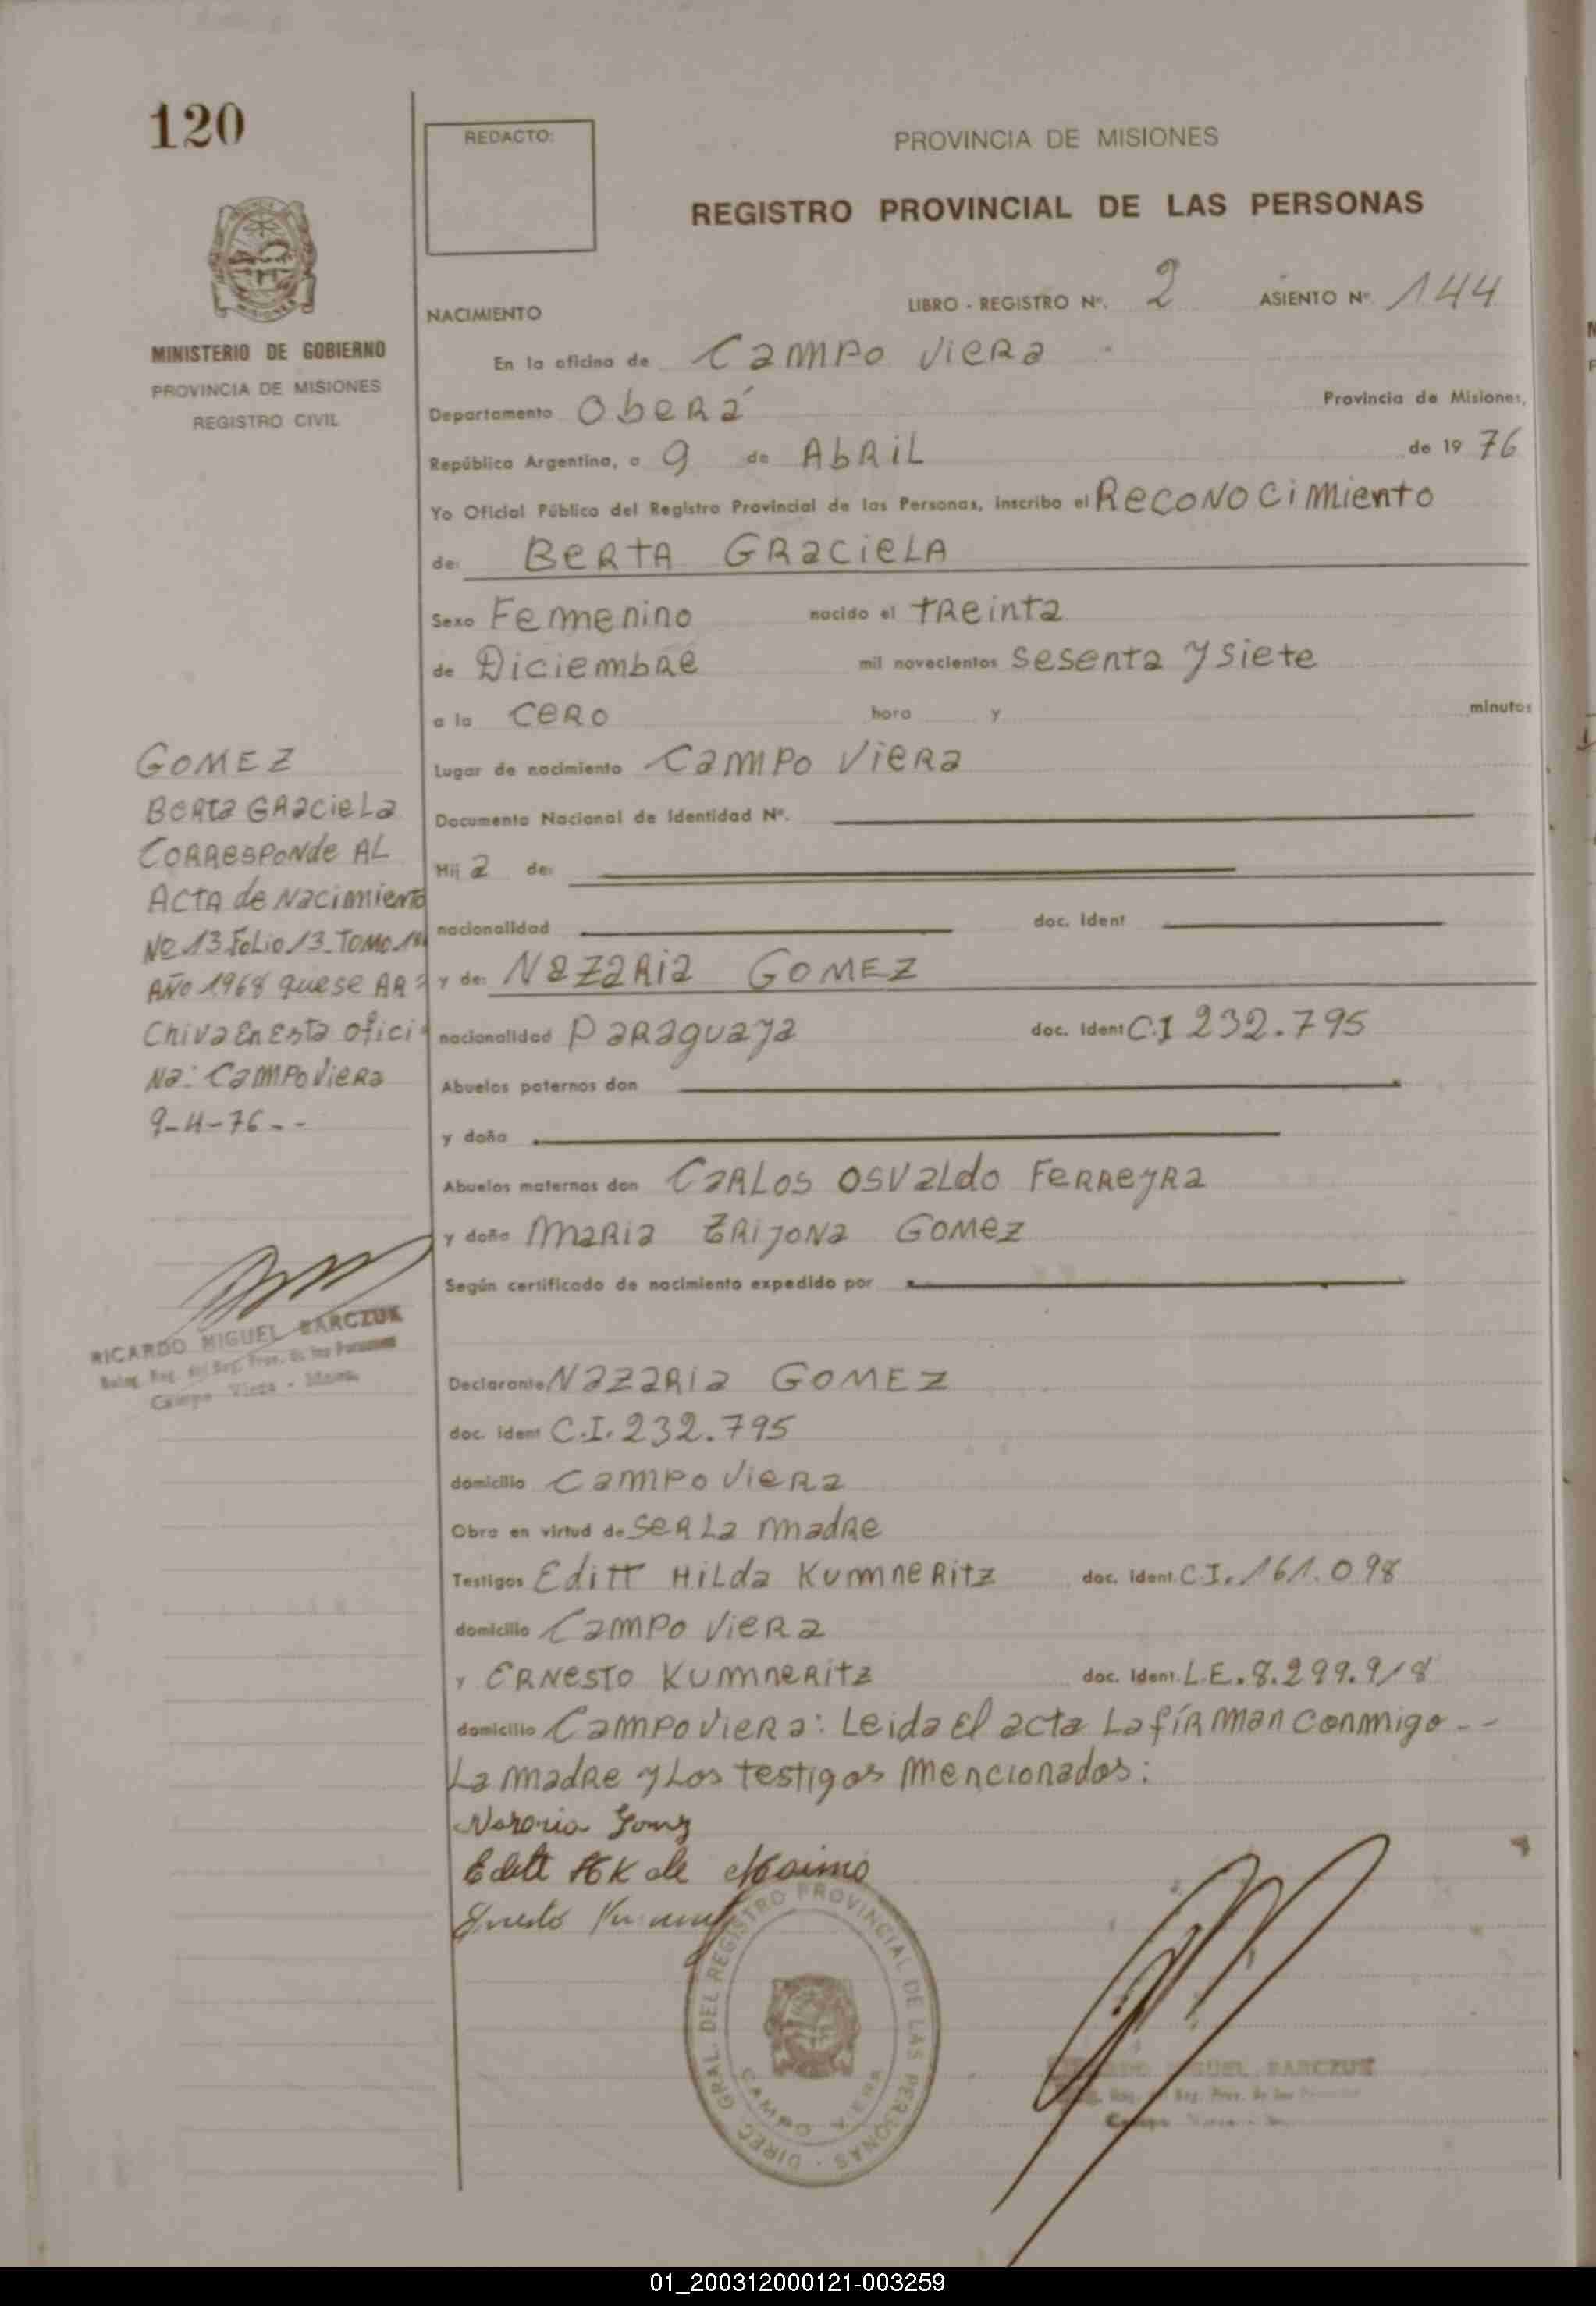 120
REDACTO:
PROVINCIA DE MISIONES
REGISTRO PROVINCIAL DE LAS PERSONAS
MINISTERIO DE GOBIERNO
PROVINCIA DE MISIONES
REGISTRO CIVIL
NACIMIENTO LIBRO - REGISTRO Nº. 2 ASIENTO Nº 144
En la oficina de CAMPO VIERA
Departamento Oberá Provincia de Misiones,
República Argentina, a 9 de Abril de 1976
Yo Oficial Público del Registro Provincial de las Personas, inscribo el Reconocimiento
de: BERTA GRACIELA
Sexo Femenino nacido el treinta
de Diciembre mil novecientos sesenta y siete
a la cero hora y minutos
Lugar de nacimiento Campo Viera
Documento Nacional de Identidad Nº.
Hija de:
nacionalidad doc. Ident
y de: Nazaria GOMEZ
nacionalidad Paraguaya doc. Ident C.I 232.795
Abuelos paternos don
y doña
Abuelos maternos don Carlos Osvaldo Ferreyra
y doña Maria Gomez
Según certificado de nacimiento expedido por
Declarante Nazaria GOMEZ
doc. ident C.I. 232.795
domicilio Campo Viera
Obra en virtud de ser la madre
Testigos Editt Hilda Kumneritz doc. ident C.I. 161.098
domicilio Campo Viera
y Ernesto Kumneritz doc. Ident. L.E. 8.299.918
domicilio Campo Viera: Leida El acta La firman conmigo --
La madre y Los testigos mencionados:
GOMEZ
Berta Graciela
Corresponde AL
Acta de Nacimiento
Nº 13 Folio 13 Tomo
Año 1968 que se Ar
chiva En Esta ofici
na: Campo Viera
9-4-76--
RICARDO MIGUEL BARCZUK
Campo Viera - Mnes.
Edett HK de
DIREC. GRAL. DEL REGISTRO PROVINCIAL DE LAS PERSONAS
CAMPO VIERA
MIGUEL BARCZUK
01_200312000121-003259